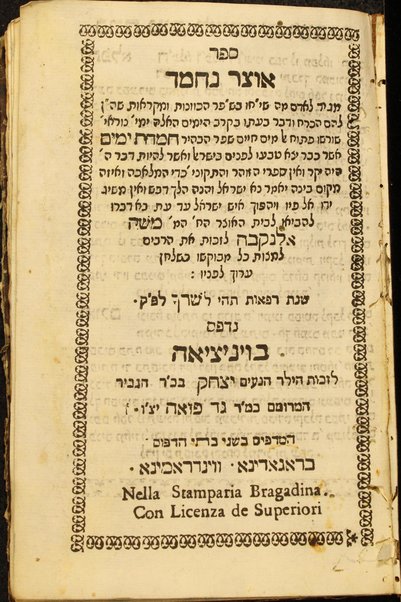 ספר
אוצר נחמד
מגיד לאדם מה שיחו בשפר הכוונות ומקראות שהן
להם הכרח ודבר בעתו בקרב הימים האלה ימי נוראי
שורשו פתוח אל מים חיים ספר הבהיר חמדת ימים
אשר כבר יצא טבעו לפנים בישראל ואשר להיות דבר ה׳
היה יקר ואין ספרי הזוהר והתקוני׳ כדי המלאכה ואיזה
מקום בינה יאמר נא ישראל והנה הלך דבש ואין משיג
ידו אל פיו ויהפוך איש ישראל עד עת בא דברו
להביאו לבית האוצר הח׳ המ׳ משה
אלנקבה לזכות את הרבים
למצות כל מבוקשו כשלחן
ערוך לפניו :
שנת רפאות תהי לשרך לפ״ק ·
נדפס
בויניציאה
לזכות הילד הנעים יצחק בכ״ר הגביר
המרומם כמ״ר גד פואה יצ״ו ·
המדפיס בשני בתי הדפוס ·
בראגאדינא · ווינדראמינא ·
Nella Stamparia Bragadina.
Con Licenza de Superiori